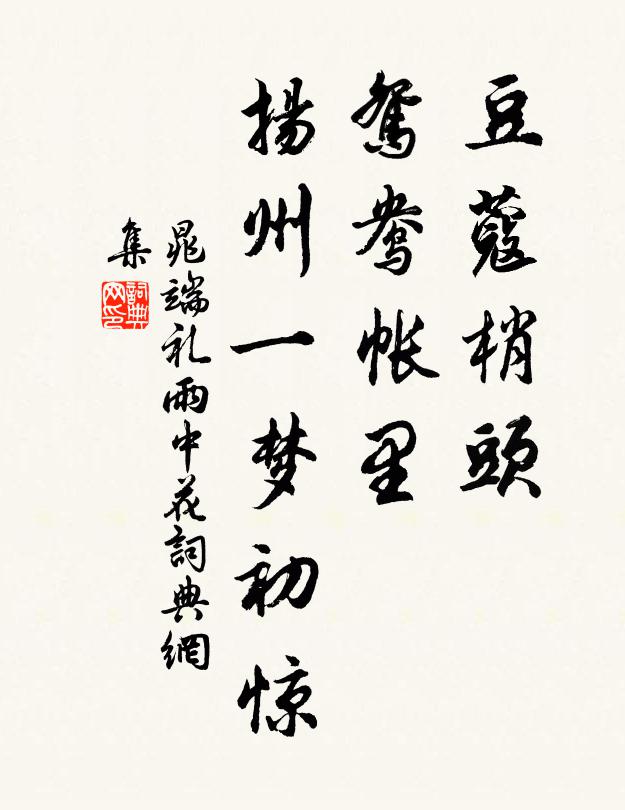 豆蔻梢頭
鴛鴦帐里
揚州一梦初惊
晁端礼雨中花詞典網
集
詞典
网印